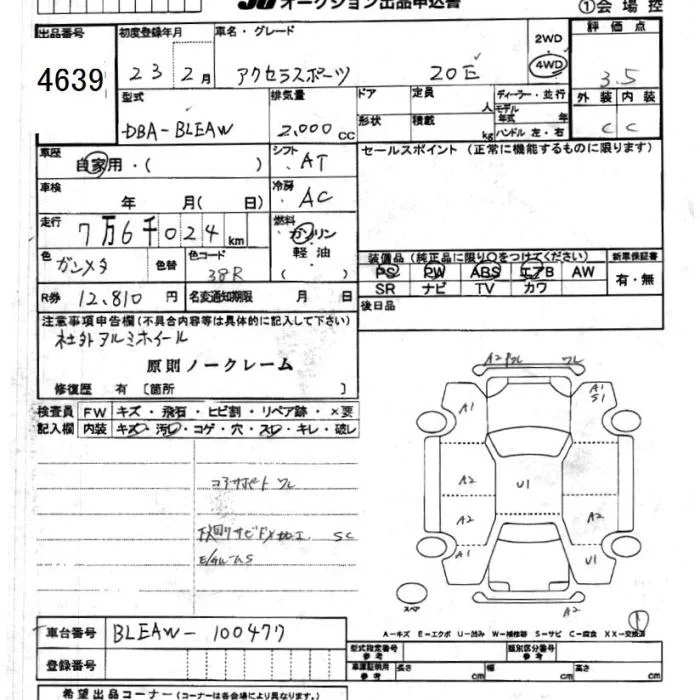 オークション出品申込書
①会場控
出品番号 4639
初度登録年月 23 2月
車名・グレード アクセラスポーツ 20E
2WD
4WD
評価点 3.5
外装 内装
C C
型式 DBA-BLEAW
排気量 2,000cc
ドア
形状
定員 人
積載 kg
ディーラー・並行
モデル年式 年
ハンドル 左・右
車歴 自家用・( )
シフト AT
セールスポイント (正常に機能するものに限ります)
車検 年 月( 日)
冷房 AC
走行 7万6千024km
燃料 ガソリン
軽油
( )
色 ガンメタ 色替
色コード 38R
装備品 (純正品に限り○をつけてください)
新車保証書
PS PW ABS エアB AW
SR ナビ TV カワ
有・無
R券 12,810円
名変通知期限 月 日
後日品
注意事項申告欄 (不具合内容等は具体的に記入して下さい)
社外アルミホイール
原則ノークレーム
修復歴 有 〔箇所 〕
検査員記入欄
FW キズ・飛石・ヒビ割・リペア跡・×要
内装 キズ・汚レ・コゲ・穴・スレ・キレ・破レ
コアサポート ワレ
下廻りサビ SC
A2 ワレ
A1 A1
S1
A2 U1
A2 A2
A1 U1
スペア A2
①
A－キズ E－エクボ U－凹み W－補修跡 S－サビ C－腐食 XX－交換済
車台番号 BLEAW-100477
登録番号
型式指定番号 参考
類別区分番号 参考
車庫証明用 参考 長さ cm 幅 cm 高さ cm
希望出品コーナー (コーナーは各会場により異なります。)